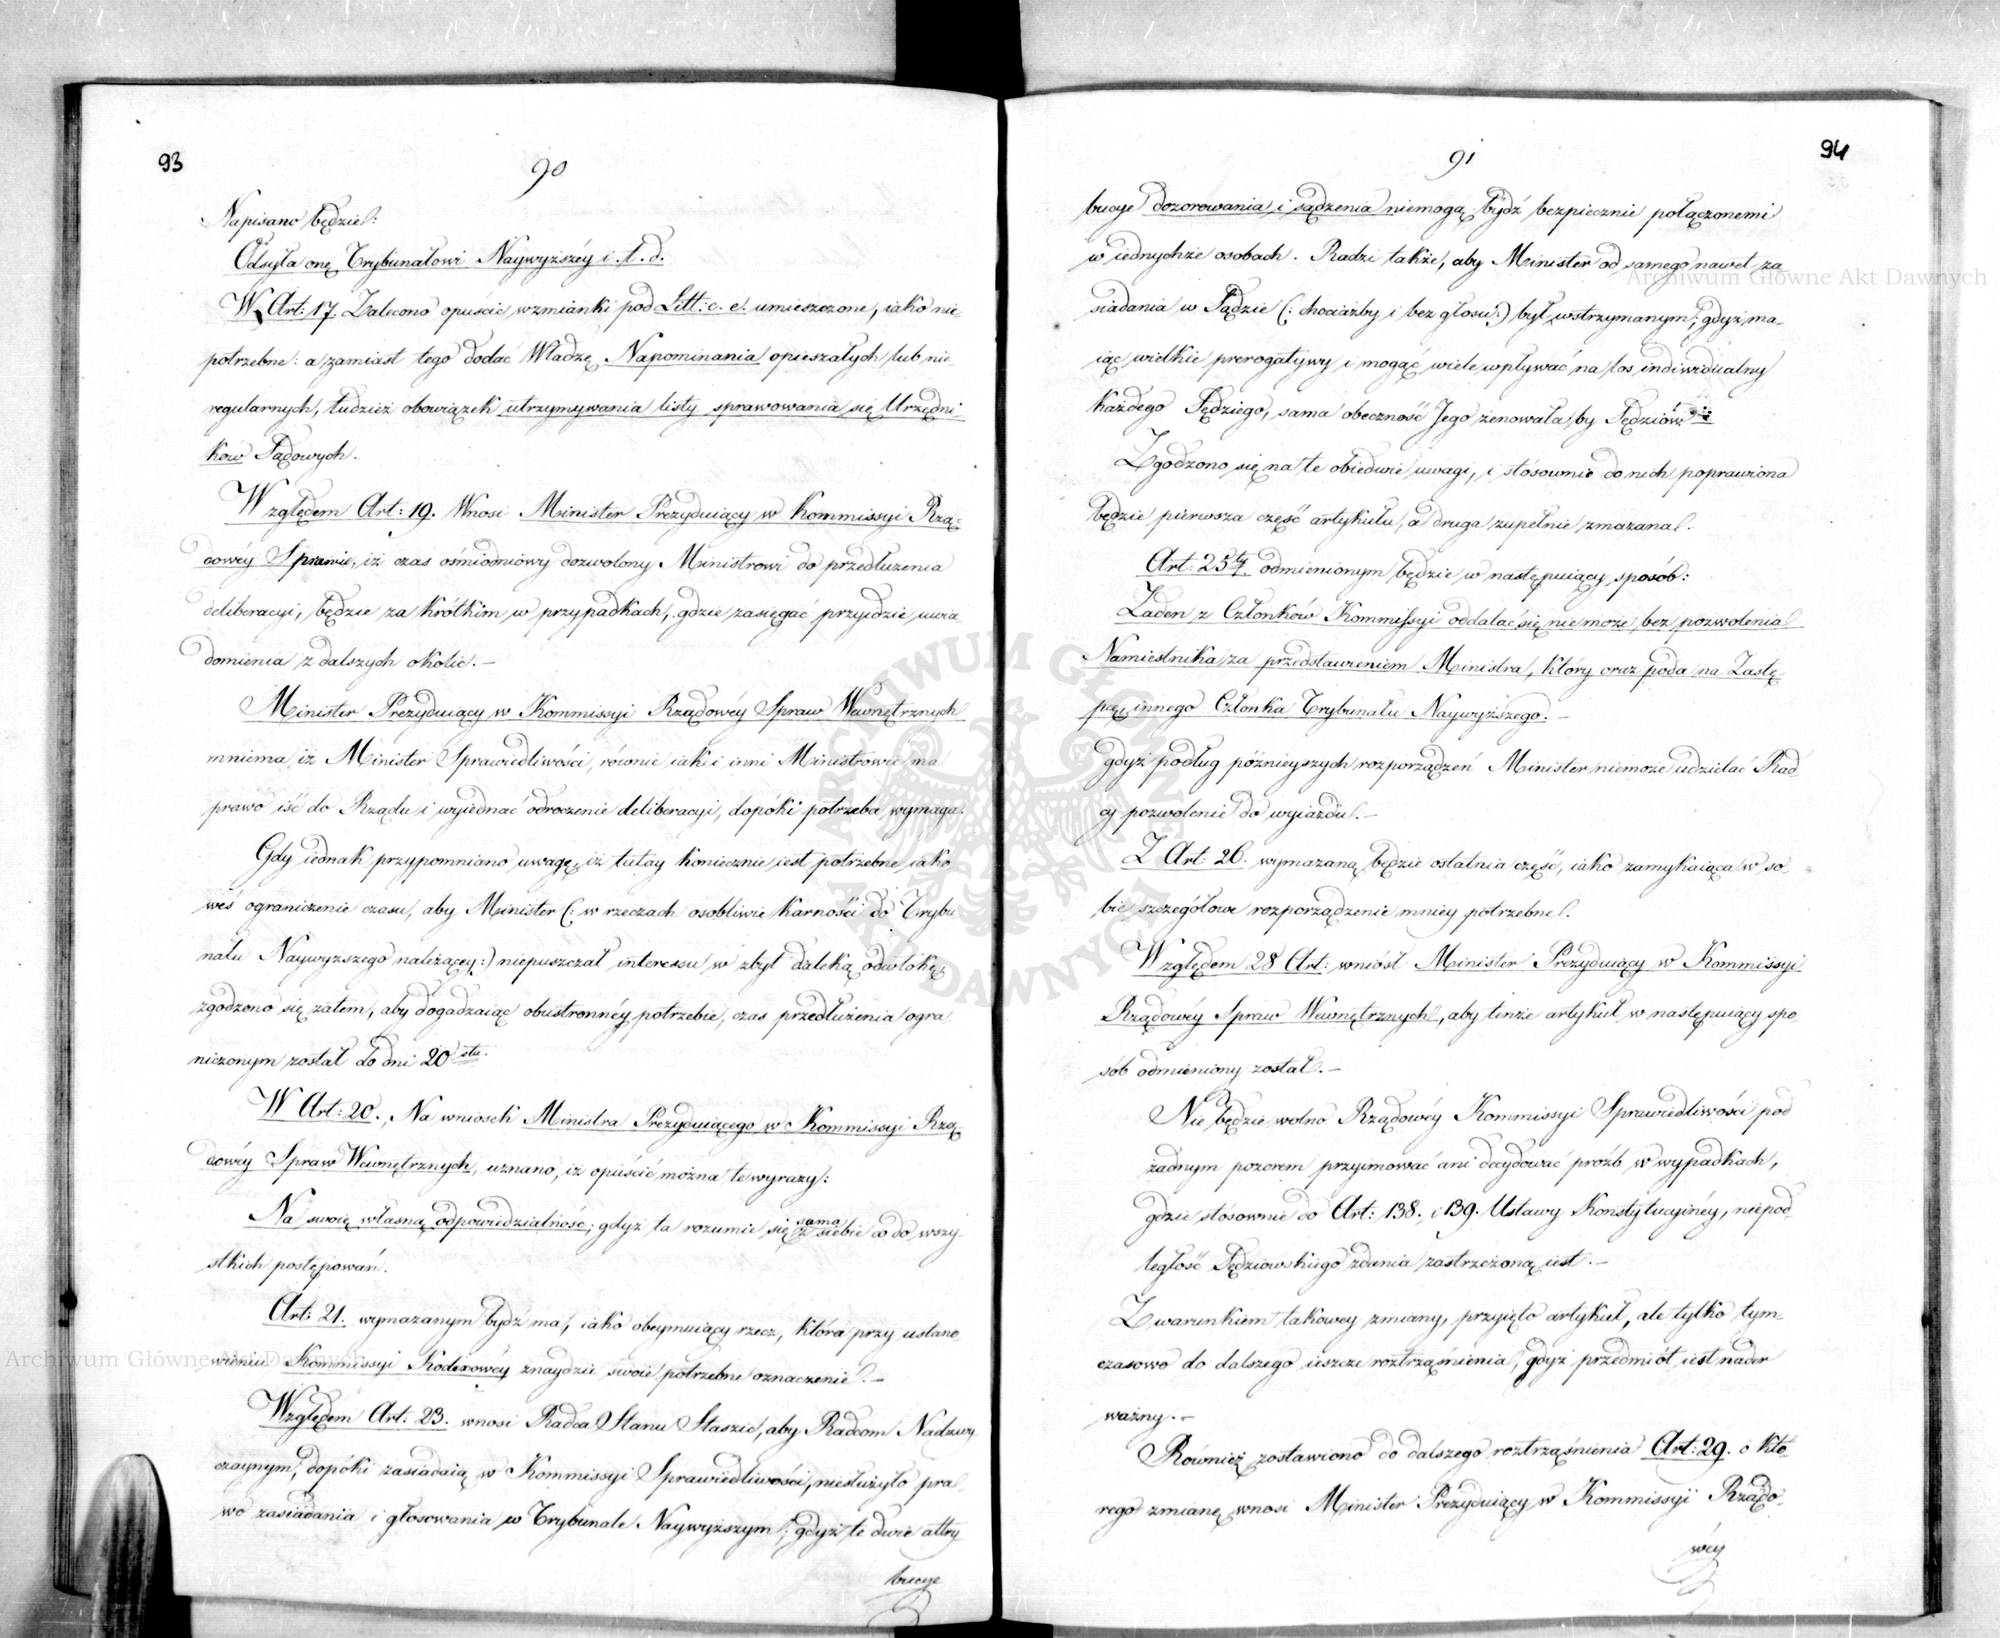 93
90
Napisano będzie:
Odsyła onę Trybunałowi Naywyższéy i. t. d.
W Art: 17. Zalecono opuścić wzmianki pod Litt: c. e. umieszczone, iako nie-
potrzebne: a zamiast tego dodać Władzę Napominania opieszałych lub nie-
regularnych, tudzież obowiązek utrzymywania listy sprawowania się Urzędni
ków Sądowych.
Względem Art: 19. Wnosi Minister Prezyduiący w Kommissyi Rzą-
dowéy Sprawie, iż czas ośmiodniowy dozwolony Ministrowi do przedłużenia
deliberacyi, będzie za krótkim w przypadkach, gdzie zasięgać przyidzie uwia
domienia z dalszych okolic. —
Minister Prezyduiący w Kommissyi Rządowéy Spraw Wewnętrznych
mniema, iż Minister Sprawiedliwości, równie iak i inni Ministrowie ma
prawo iść do Rządu i wyiednać odroczenie deliberacyi, dopóki potrzeba wymaga.
Gdy iednak przypomniano uwagę, iż tutay koniecznie iest potrzebne iako
weś ograniczenie czasu, aby Minister (: w rzeczach osobliwie karności do Trybu
nału Naywyższego należącey:) niepuszczał interessu w zbyt daleką odwłokę,
zgodzono się zatem, aby dogadzaiąc obustronnéy potrzebie, czas przedłużenia ogra
niczonym został do dni 20stu.
W Art: 20. Na wniosek Ministra Prezyduiącego w Kommissyi Rzą-
dowéy Spraw Wewnętrznych, uznano, iż opuścić można te wyrazy:
Na swoię własną odpowiedzialność, gdyż ta rozumie się sama z siebie co do wszy-
stkich postępowań.
Art: 21. wymazanym bydź ma, iako obeymuiący rzecz, która przy ustano
wieniu Kommissyi Kodexowéy znaydzie swoie potrzebne oznaczenie. —
Względem Art: 23. wnosi Radca Stanu Staszic, aby Radcom Nadzwy
czaynym, dopóki zasiadaią w Kommissyi Sprawiedliwości, niesłużyło pra
wo zasiadania i głosowania w Trybunale Naywyższym; gdyż te dwie attry
bucye
91
94
bucye dozorowania i sądzenia niemogą bydź bezpiecznie połączonemi
w iednychże osobach. Radzi także, aby Minister od samego nawet za
siadania w Sądzie (: chociażby i bez głosu:) był wstrzymanym; gdyż ma-
iąc wielkie prerogatywy i mogąc wiele wpływać na los indiwidualny
każdego Sędziego, sama obecność Jego żenowała by Sędziów.
Zgodzono się na te obiedwie uwagi, i stósownie do nich poprawiona
będzie pierwsza część artykułu, a druga zupełnie zmazana.
Art: 25ty. odmienionym będzie w następuiący sposób:
Żaden z Członków Kommissyi oddalać się nie może, bez pozwolenia
Namiestnika za przedstawieniem Ministra, który oraz poda na Zastę
pcę innego Członka Trybunału Naywyższego. —
gdyż podług późnieyszych rozporządzeń Minister niemoże udzielać Rad
cy pozwolenie do wyiazdu. —
Z Art: 26. wymazaną będzie ostatnia część, iako zamykaiąca w so-
bie szczegółowe rozporządzenie mniey potrzebne.
Względem 28 Art: wniósł Minister Prezyduiący w Kommissyi
Rządowéy Spraw Wewnętrznych, aby tenże artykuł w następuiący spo
sób odmieniony został. —
Nie będzie wolno Rządowéy Kommissyi Sprawiedliwości pod
żadnym pozorem przyimować ani decydować próźb w wypadkach,
gdzie stósownie do Art: 138. i 139. Ustawy Konstytucyinéy, niepod-
ległość Sędziowskiego zdania zastrzeżoną iest. —
Z warunkiem takowey zmiany, przyięto artykuł, ale tylko tym-
czasowo do dalszego ieszcze roztrząśnienia, gdyż przedmiót iest nader
ważny. —
Również zostawiono do dalszego roztrząśnienia Art: 29. o któ-
rego zmianę wnosi Minister Prezyduiący w Kommissyi Rządo-
wéy
Archiwum Główne Akt Dawnych
Archiwum Główne Akt Dawnych
ARCHIWUM GŁÓWNE AKT DAWNYCH